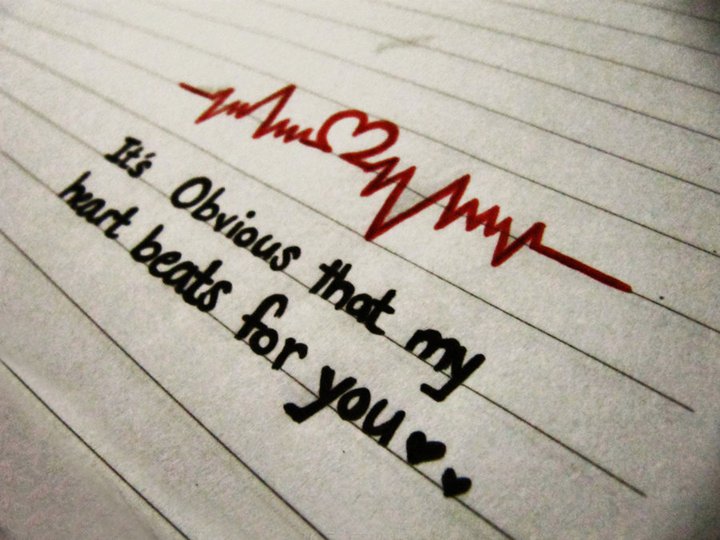 It's Obvious that my
heart beats for you